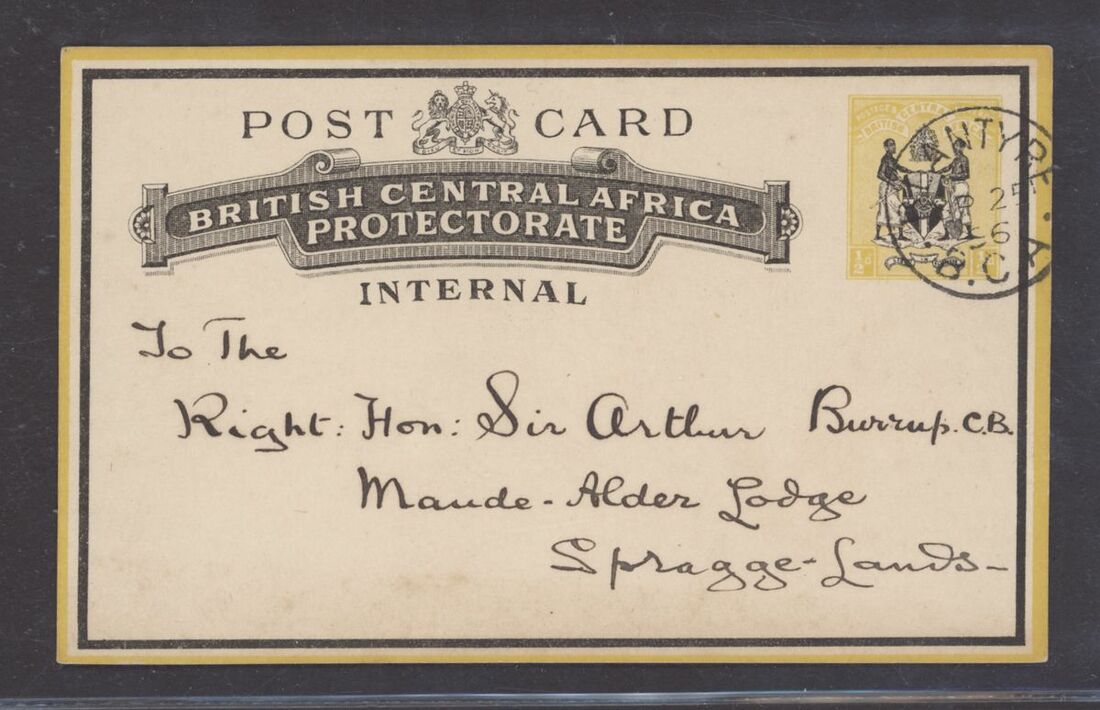 POST CARD
BRITISH CENTRAL AFRICA
PROTECTORATE
INTERNAL
POSTAGE &
BRITISH CENTRAL
½d
ANTYRE
25
96
B.C.A
To The
Right: Hon: Sir Arthur Burrup. C.B.
Maude-Alder Lodge
Spragge-Lands-